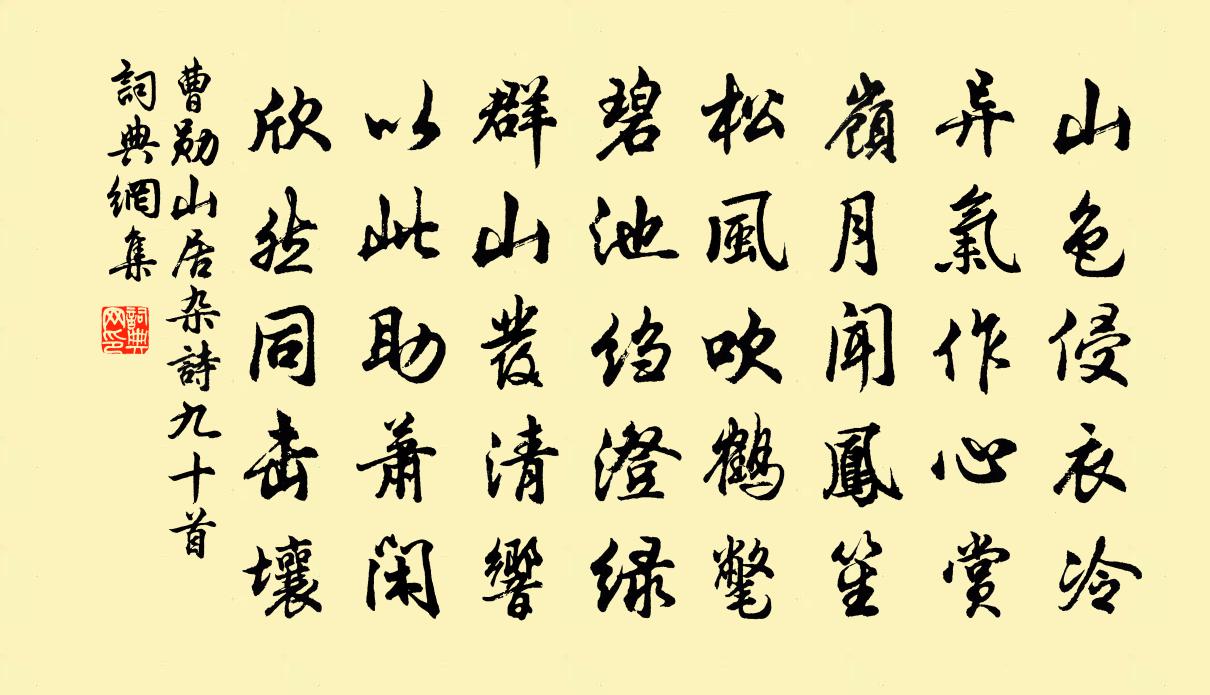 山色侵衣冷
异氣作心賞
嶺月闻鳳笙
松風吹鶴氅
碧池绉澄绿
群山發清響
以此助萧闲
欣然同击壤
曹勋山居杂詩九十首
詞典網集
詞典网印